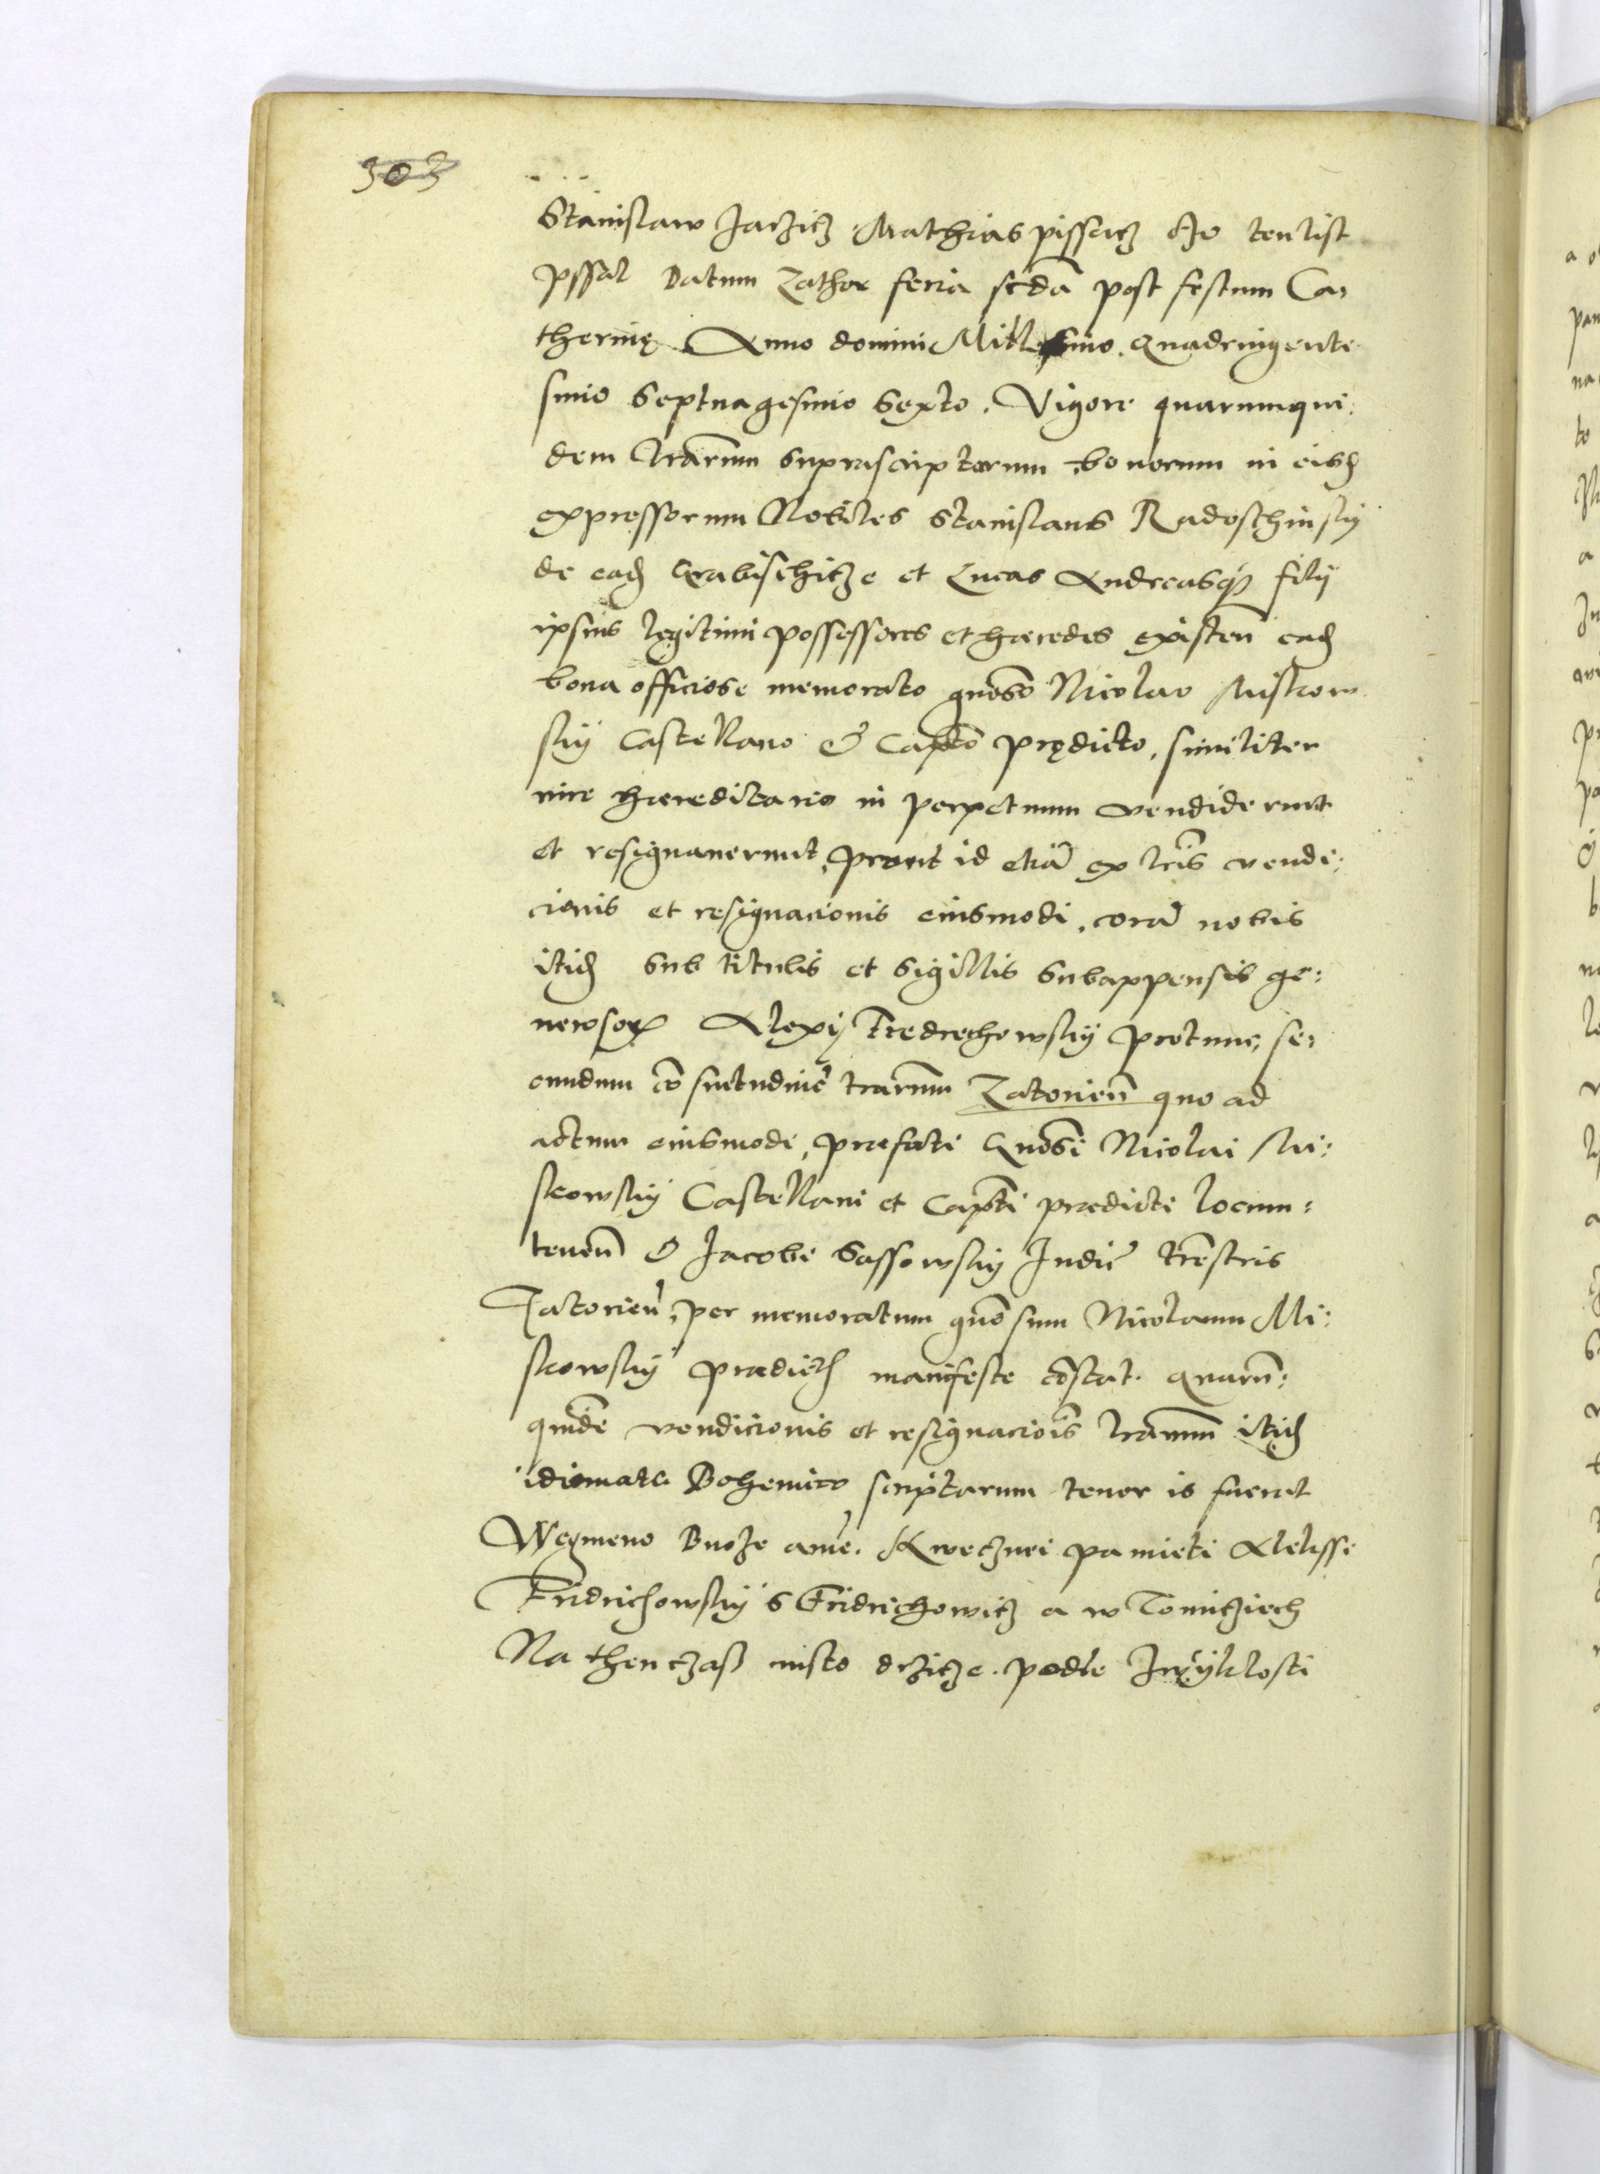 303
Stanislaw Jaczicz Mathias pissarz kto ten list
pssal Datum Zathor feria scdâ post festum Ca,
therinę Anno domini Millesimo Quadringente
simo Septuagesimo Sexto. Vigore quarumqui,
dem lrarum suprascriptarum bonorum in eisd
expressorum Nobiles Stanislaus Radoschinsky
de ead Grabischicze et Lucas Andreasq filÿ
ipsius legitimi possessores et hæredes existen ead
bona officiose memorato gnoso Nicolao Miskow
sky Castellano & Capto prędicto, similiter
iure hæreditario in perpetuum vendiderunt
et resignauerunt, prout id etiâ ex lris vendi,
cionis et resignacionis eiusmodi, corâ nobis
itid sub titulis et sigillis subappensis ge,
nerosor Alexÿ Fredrechowsky protunc, se,
cundum cosuetudine terrarum Zatorien quo ad
actum eiusmodi, præfati Gnosi Nicolai Mi,
skowsky Castellani et Capti prædicti locum,
tenen & Jacobi Sassowsky Judic trestris
Zatorien, per memoratum gnosum Nicolaum Mi,
skowsky prædict manifeste costat. Quarum,
quide vendicionis et resignacionis lrarum itid
idiomate Bohemico scriptarum tenor is fuerat
Wegmeno Buoze ame. K wecznei pamieti Alelsse
Fridrichowsky s Fridrichowicz a w Tomicziech
Na then czasz misto drzicze. podle Zwyklosti